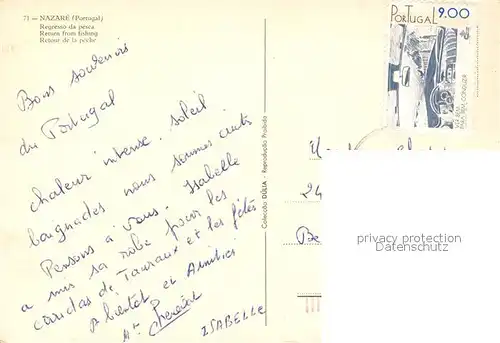 71 — NAZARÉ (Portugal)
Regresso da pesca
Return from fishing
Retour de la pêche
Bons souvenirs
du Portugal
chaleur intense, soleil
baignades nous sommes cuits
Pensons à vous. Isabelle
a mis sa robe pour les
corridas de Taureaux et les fêtes
A bientôt et Amitiés
ISABELLE
Colecção DÚLIA - Reprodução Proibida
PORTUGAL 9.00
VER BEM
PARA BEM CONDUZIR
24
Be
privacy protection
VerimaRestposten